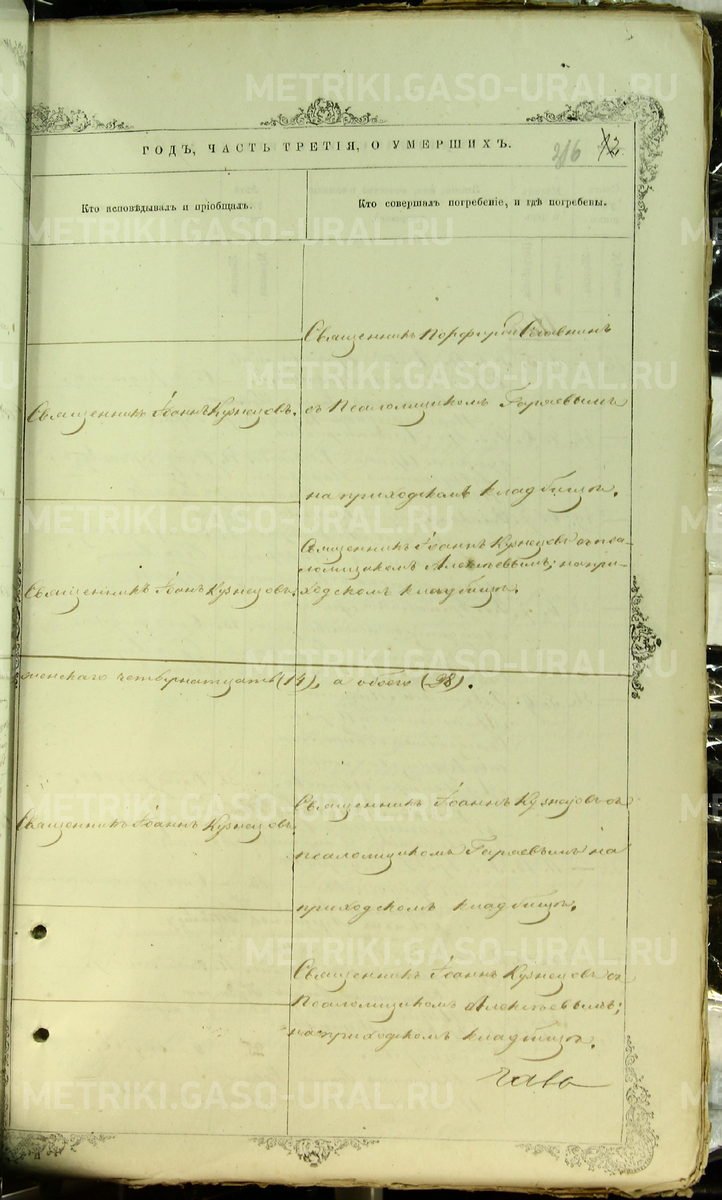 METRIKI.GASO-URAL.RU
ГОДЪ, ЧАСТЬ ТРЕТІЯ, О УМЕРШИХЪ.
216
Кто исповѣдывалъ и пріобщалъ.
Кто совершалъ погребеніе, и гдѣ погребены.
Священникъ Порфирій Славнинъ
Священникъ Іоаннъ Кузнецовъ.
съ Псаломщикомъ Гаряевымъ
на приходскомъ кладбищѣ.
Священникъ Іоаннъ Кузнецовъ съ пса-
ломщикомъ Алексѣевымъ; на при-
Священникъ Іоаннъ Кузнецовъ.
ходскомъ кладбищѣ.
женскаго четырнатцать (14), а обоего (28).
Священникъ Іоаннъ Кузнецовъ съ
Священникъ Іоаннъ Кузнецовъ.
псаломщикомъ Гаряевымъ на
приходскомъ кладбищѣ.
Священникъ Іоаннъ Кузнецовъ съ
Псаломщикомъ Алексѣевымъ;
на приходскомъ кладбищѣ.